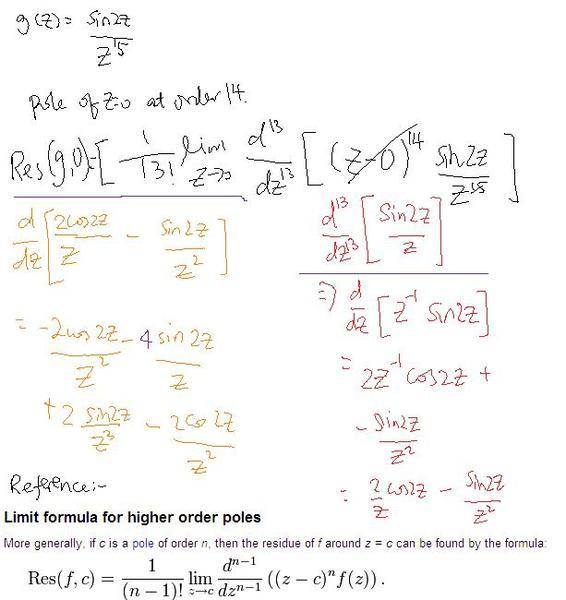 g(z) = sin2z / z^15
Pole of z=0 at order 14.
Res(g,0)=[ 1/13! lim z→0 d^13/dz^13 [ (z-0)^14 sin2z/z^15 ]
d^13/dz^13 [ sin2z/z ]
⇒ d/dz [ z^-1 sin2z ]
= 2z^-1 cos2z +
- sin2z/z^2
= 2/z cos2z - sin2z/z^2
d/dz [ 2cos2z/z - sin2z/z^2 ]
= -2cos2z/z^2 - 4 sin2z/z
+ 2 sin2z/z^3 - 2co2z/z^2
Reference:-
Limit formula for higher order poles
More generally, if c is a pole of order n, then the residue of f around z = c can be found by the formula:
Res(f, c) = 1/(n-1)! lim z→c d^n-1/dz^n-1 ((z-c)^n f(z)).